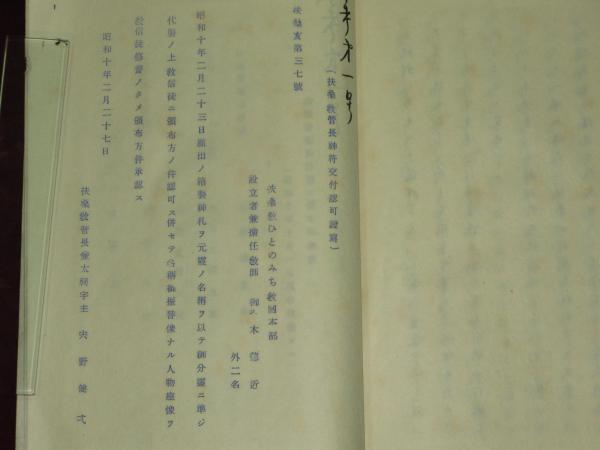 第一号
(扶桑教管長神符交付認可證寫)
扶桑亥第三七號
扶桑教ひとのみち教團本部
設立者兼擔任教師 御木德近
外二名
昭和十年二月二十三日願出ノ箱裝神札ヲ元靈ノ名稱ヲ以テ御分靈ニ準ジ
代製ノ上教信徒ニ頒布方ノ件認可ス併セテ名稱御振替像ナル人物座像ヲ
教信徒修齋ノタメ頒布方件承認ス
昭和十年二月二十七日
扶桑教管長兼太祠宇主 宍野健弌